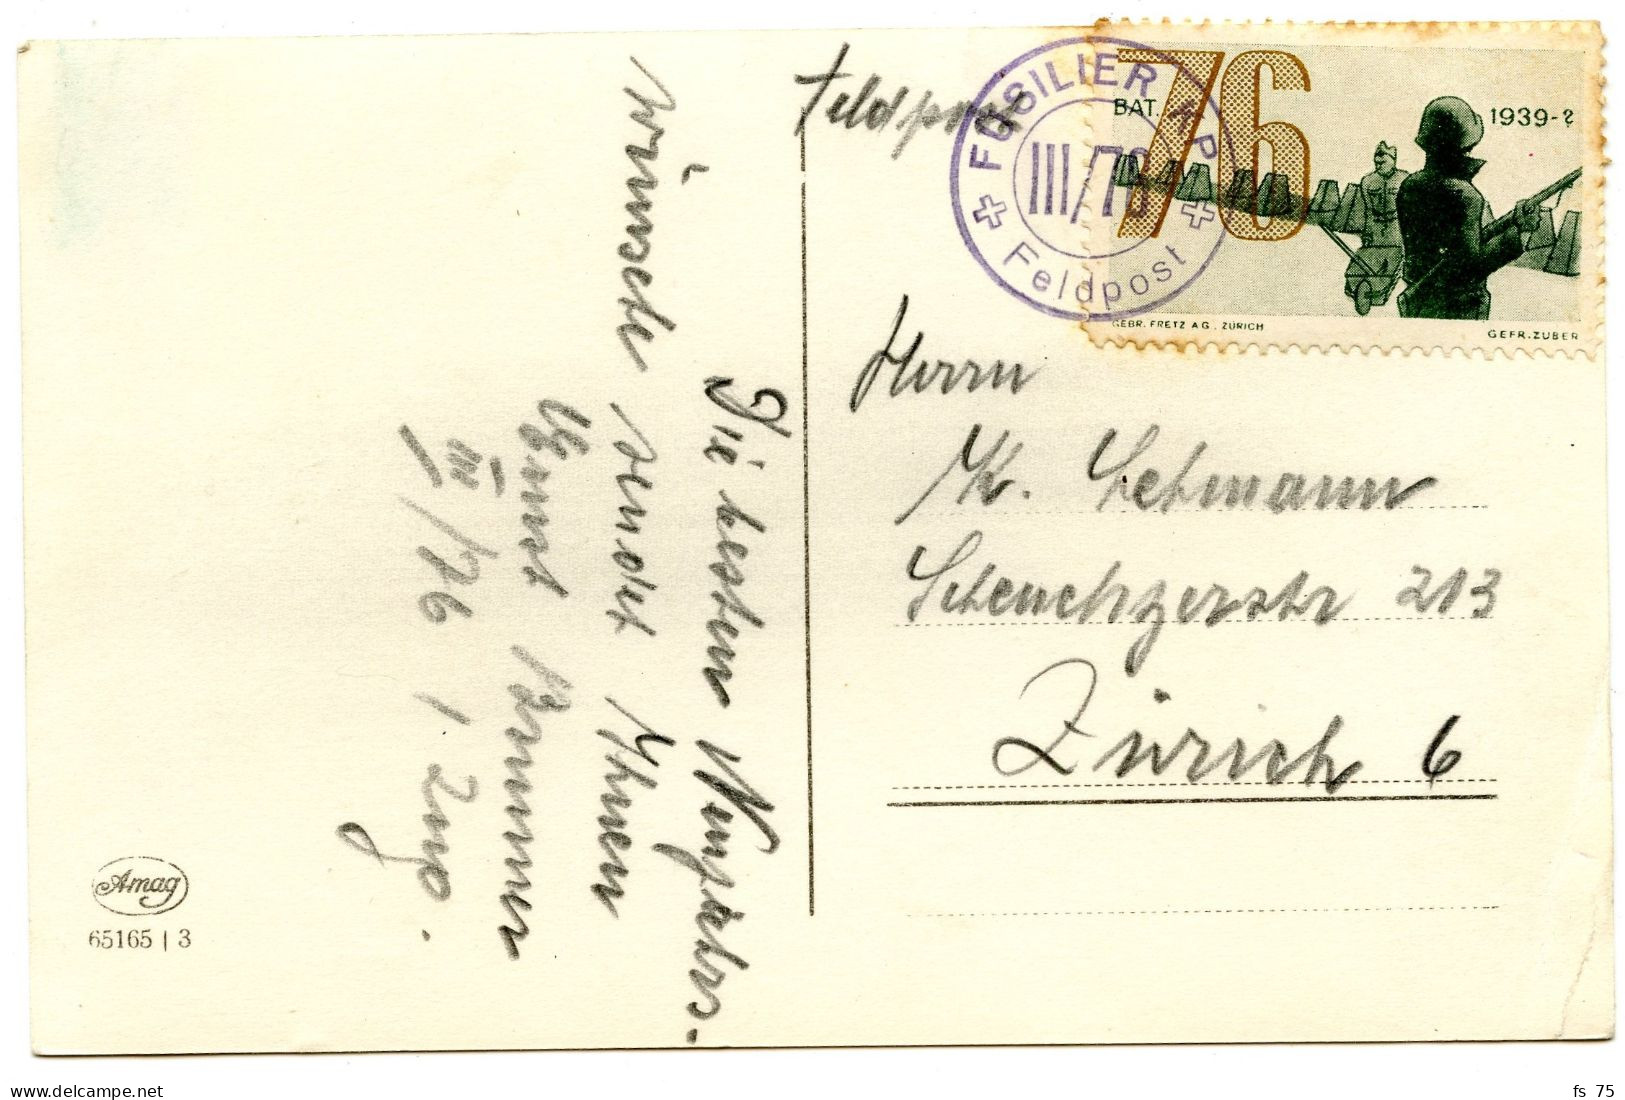 Feldpost
FÜSILIER KP.
III/76
Feldpost
76
BAT.
1939-?
GEBR. FRETZ A G. ZÜRICH
GEFR. ZUBER
Herrn
K. Lehmann
Scheuchzerstr 213
Zürich 6
Die besten Neujahrs-
wünsche sendet Ihnen
Ernst Brunner
III/76 1 Zug.
Amag
65165 | 3
fs 75